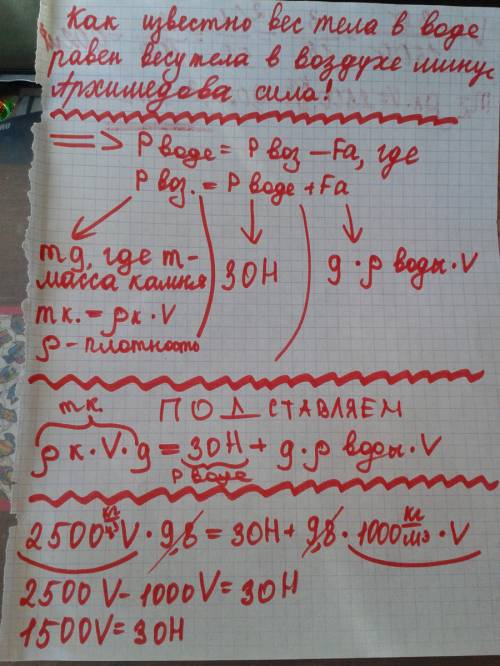 Как известно вес тела в воде
равен весу тела в воздухе минус
Архимедова сила!
=> P воде = P воз – Fa, где
P воз. = P воде + Fa
mg, где m-
масса камня
mк. = ρк · V
ρ - плотность
30H
g · ρ воды · V
mк.
ПОДСТАВЛЯЕМ
ρк · V · g = 30H + g · ρ воды · V
P воде
2500 кг/м³ V · 9,8 = 30H + 9,8 · 1000 кг/м³ · V
2500V - 1000V = 30H
1500V = 30H